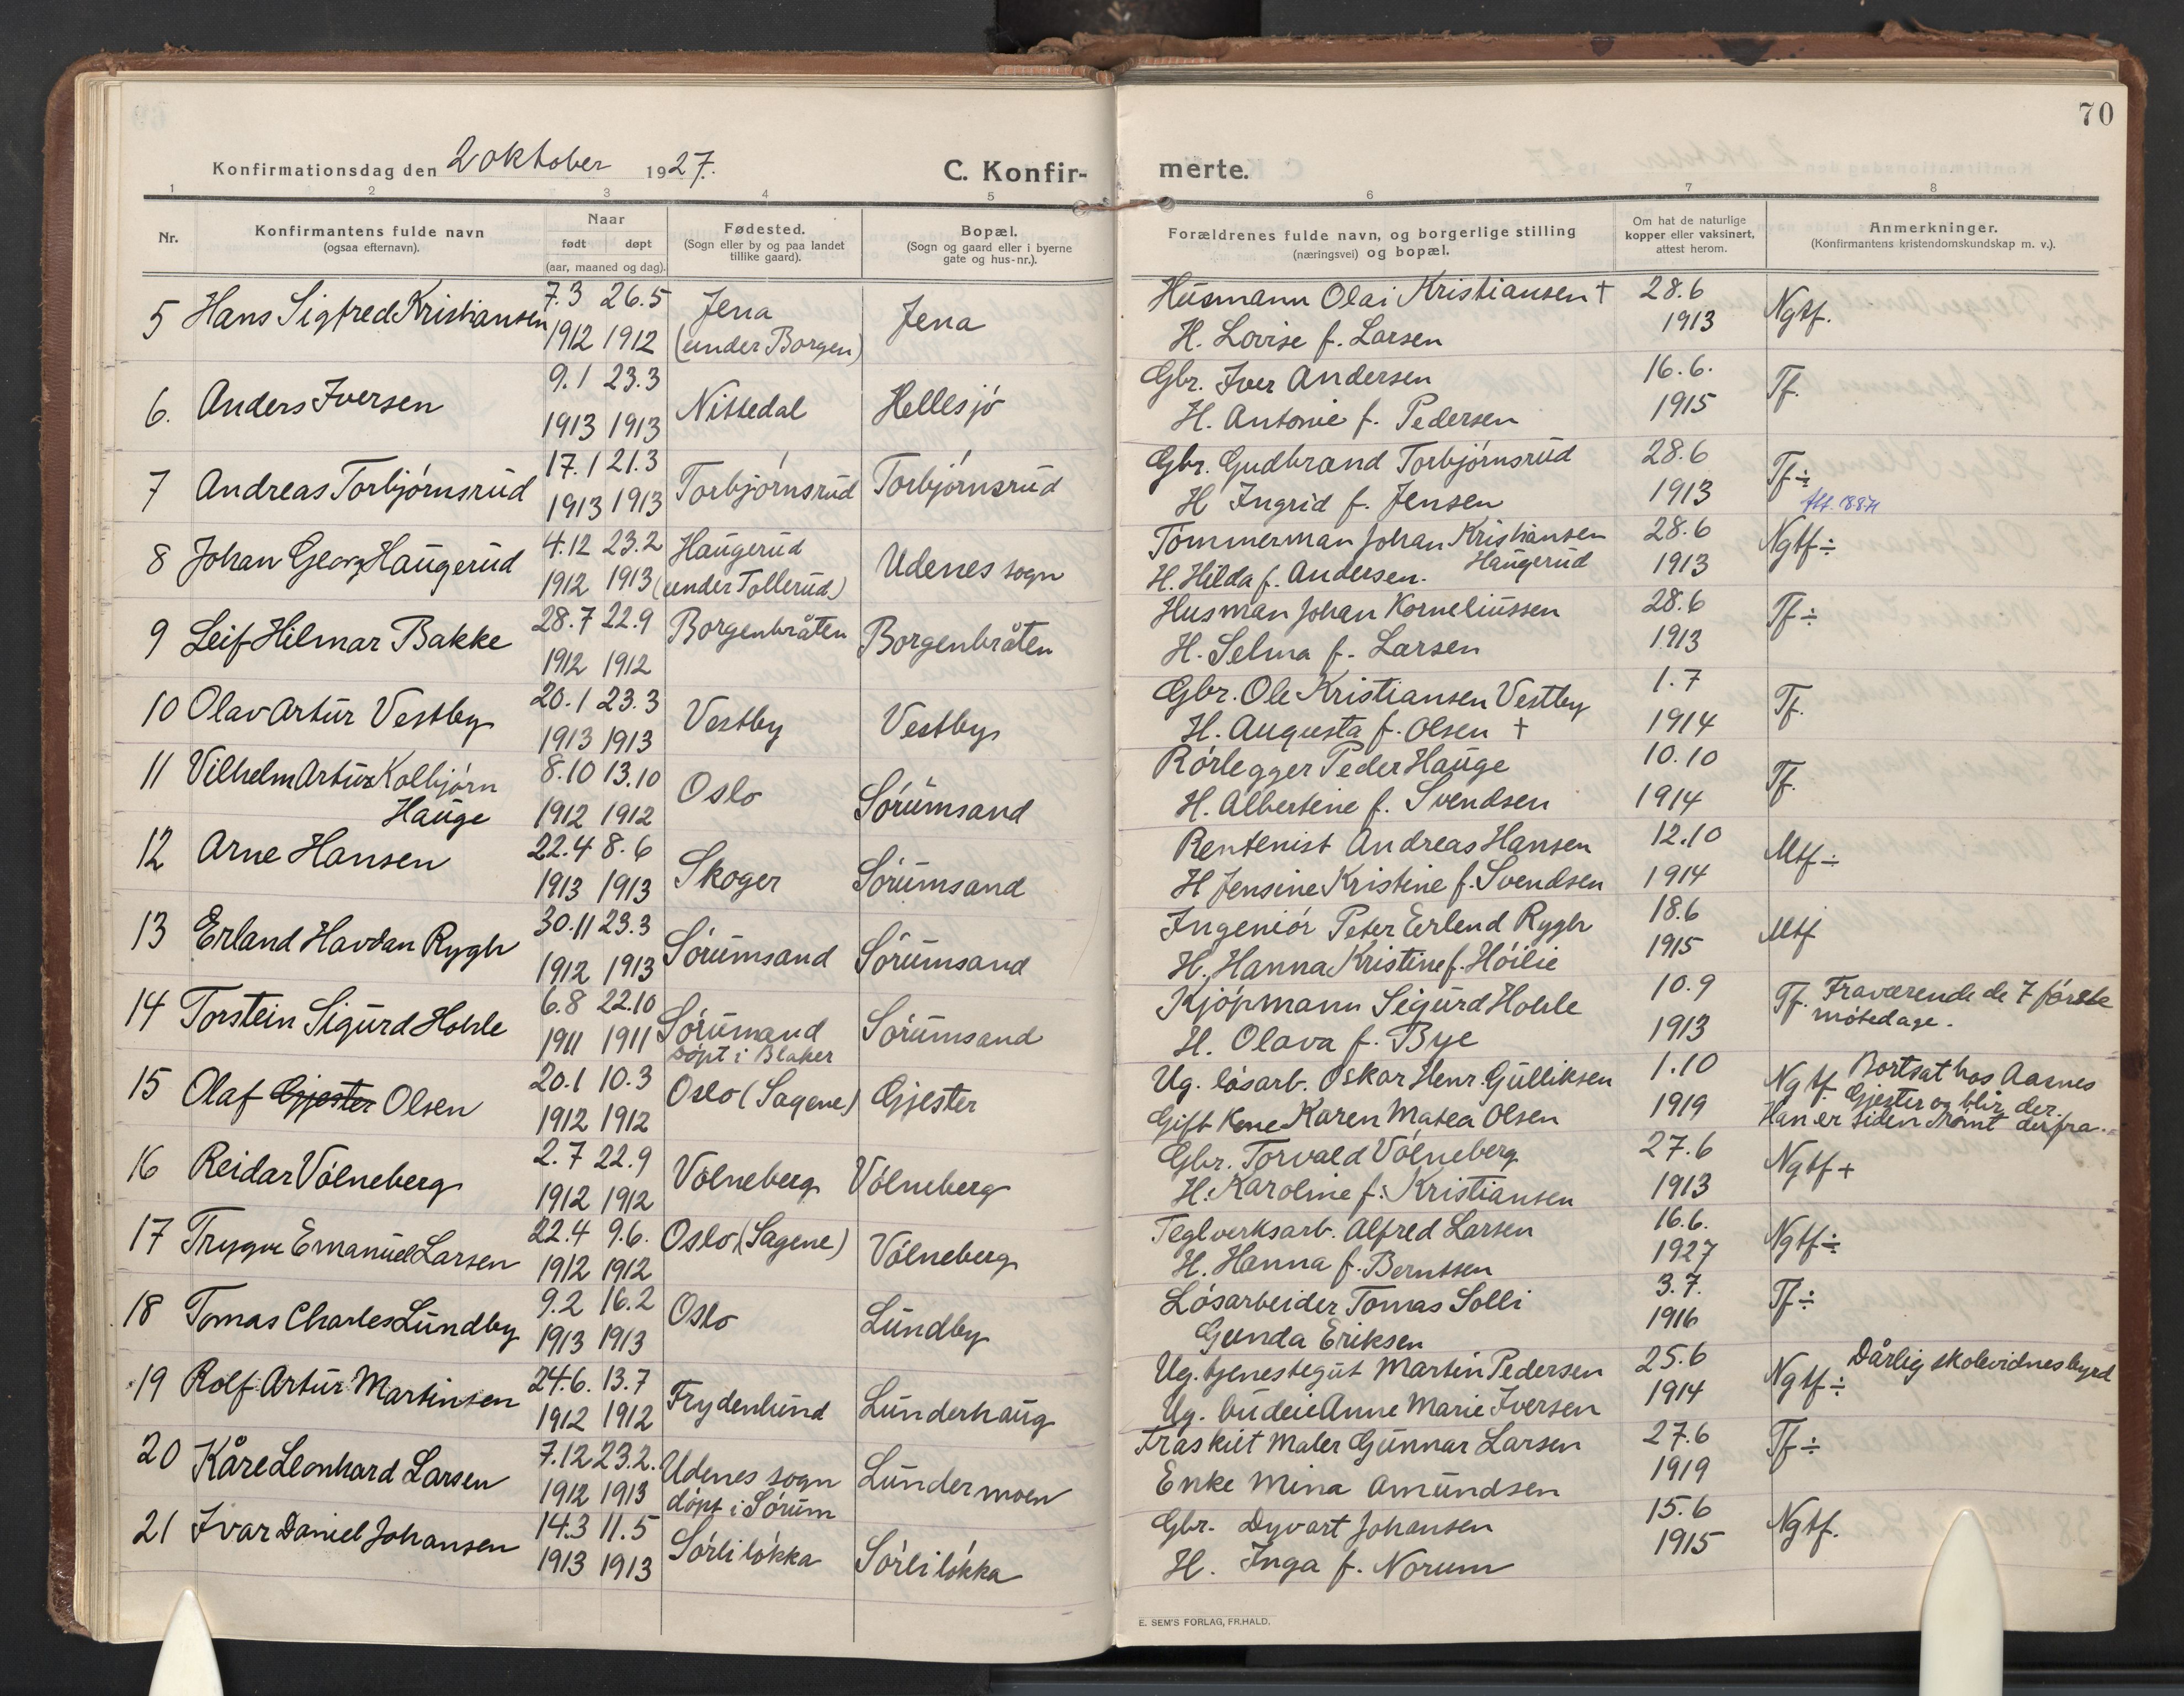 70
Konfirmationsdag den 2 oktober 1927.
C. Konfir-
merte.
1 2 3 4 5 6 7 8
Nr.
Konfirmantens fulde navn
(ogsaa efternavn).
Naar
født døpt
(aar, maaned og dag).
Fødested.
(Sogn eller by og paa landet
tillike gaard).
Bopæl.
(Sogn og gaard eller i byerne
gate og hus-nr.).
Forældrenes fulde navn, og borgerlige stilling
(næringsvei) og bopæl.
Om hat de naturlige
kopper eller vaksinert,
attest herom.
Anmerkninger.
(Konfirmantens kristendomskundskap m. v.).
5 Hans Sigfred Kristiansen 7.3 26.5 Jena Jena Husmann Olai Kristiansen † 28.6 Ngtf.
1912 1912 (under Borgen) H. Lovise f. Larsen 1913
6. Anders Iversen 9.1 23.3 Nittedal Hellesjó Gbr. Iver Andersen 16.6. Tf.
1913 1913 H. Antonie f. Pedersen 1915
7 Andreas Torbjórnsrud 17.1 21.3 Torbjórnsrud Torbjórnsrud Gbr. Gudbrand Torbjórnsrud 28.6 Tf÷
1913 1913 H Ingrid f. Jensen 1913
8 Johan Georg Haugerud 4.12 23.2 Haugerud Udenes sogn Tómmerman Johan Kristiansen 28.6 Ngtf÷
Haugerud
1912 1913 (under Tollerud) H. Hilda f. Andersen. 1913
9 Leif Hilmar Bakke 28.7 22.9 Borgenbråten Borgenbråten Husman Johan Korneliussen 28.6 Tf÷
1912 1912 H. Selma f. Larsen 1913
10 Olav Artur Vestby 20.1 23.3 Vestby Vestby Gbr. Ole Kristiansen Vestby 1.7 Tf.
1913 1913 H. Augusta f. Olsen † 1914
11 Vilhelm Artur Kolbjórn 8.10 13.10 Oslo Sórumsand Rórlegger Peder Hauge 10.10 Tf.
Hauge 1912 1912 H. Albertine f. Svendsen 1914
12 Arne Hansen 22.4 8.6 Skoger Sórumsand Rentenist Andreas Hansen 12.10 Mtf÷
1913 1913 H Jensine Kristine f. Svendsen 1914
13 Erland Havdan Rygh 30.11 23.3 Sórumsand Sórumsand Ingeniór Peter Erlend Rygh 18.6 Mtf
1912 1913 H. Hanna Kristine f. Hóilie 1915
14 Torstein Sigurd Hohle 6.8 22.10 Sórumand Sórumsand Kjópmann Sigurd Hohle 10.9 Tf. Fraværende de 7 fórste
1911 1911 Dópt i Blaker H. Olava f. Bye 1913 mótedage.
15 Olaf Gjester Olsen 20.1 10.3 Oslo (Sagene) Gjester Ug. lósarb. Oskar Henr. Gulliksen 1.10 Ngtf Bortsat hos Aasnes
1912 1912 Gift Kone Karen Matea Olsen 1919 Gjester og blir der.
Han er siden rómt derfra.
16 Reidar Vólneberg 2.7 22.9 Vólneberg Vólneberg Gbr. Torvald Vólneberg 27.6 Ngtf+
1912 1912 H. Karoline f. Kristiansen 1913
17 Trygve Emanuel Larsen 22.4 9.6. Oslo (Sagene) Vólneberg Teglverksarb. Alfred Larsen 16.6. Ngtf÷
1912 1912 H. Hanna f. Berntsen 1927
18 Tomas Charles Lundby 9.2 16.2 Oslo Lundby Lósarbeider Tomas Solli 3.7. Tf÷
1913 1913 Gunda Eriksen 1916
19 Rolf Artur Martinsen 24.6. 13.7 Frydenlund Lunderhaug Ug. tjenestegut Martin Pedersen 25.6 Ngtf÷ Dårlig skolevidnesbyrd
1912 1912 Ug. budeie Anne Marie Iversen 1914
20 Kåre Leonhard Larsen 7.12 23.2. Udenes sogn Lundermoen Fraskilt Maler Gunnar Larsen 27.6 Tf÷
1912 1913 dópt i Sórum Enke Mina Amundsen 1919
21 Ivar Daniel Johansen 14.3 11.5 Sórli lókka Sórli lókka Gbr. Dyvart Johansen 15.6 Ngtf.
1913 1913 H. Inga f. Norum 1915
E. SEM'S FORLAG, FR.HALD.